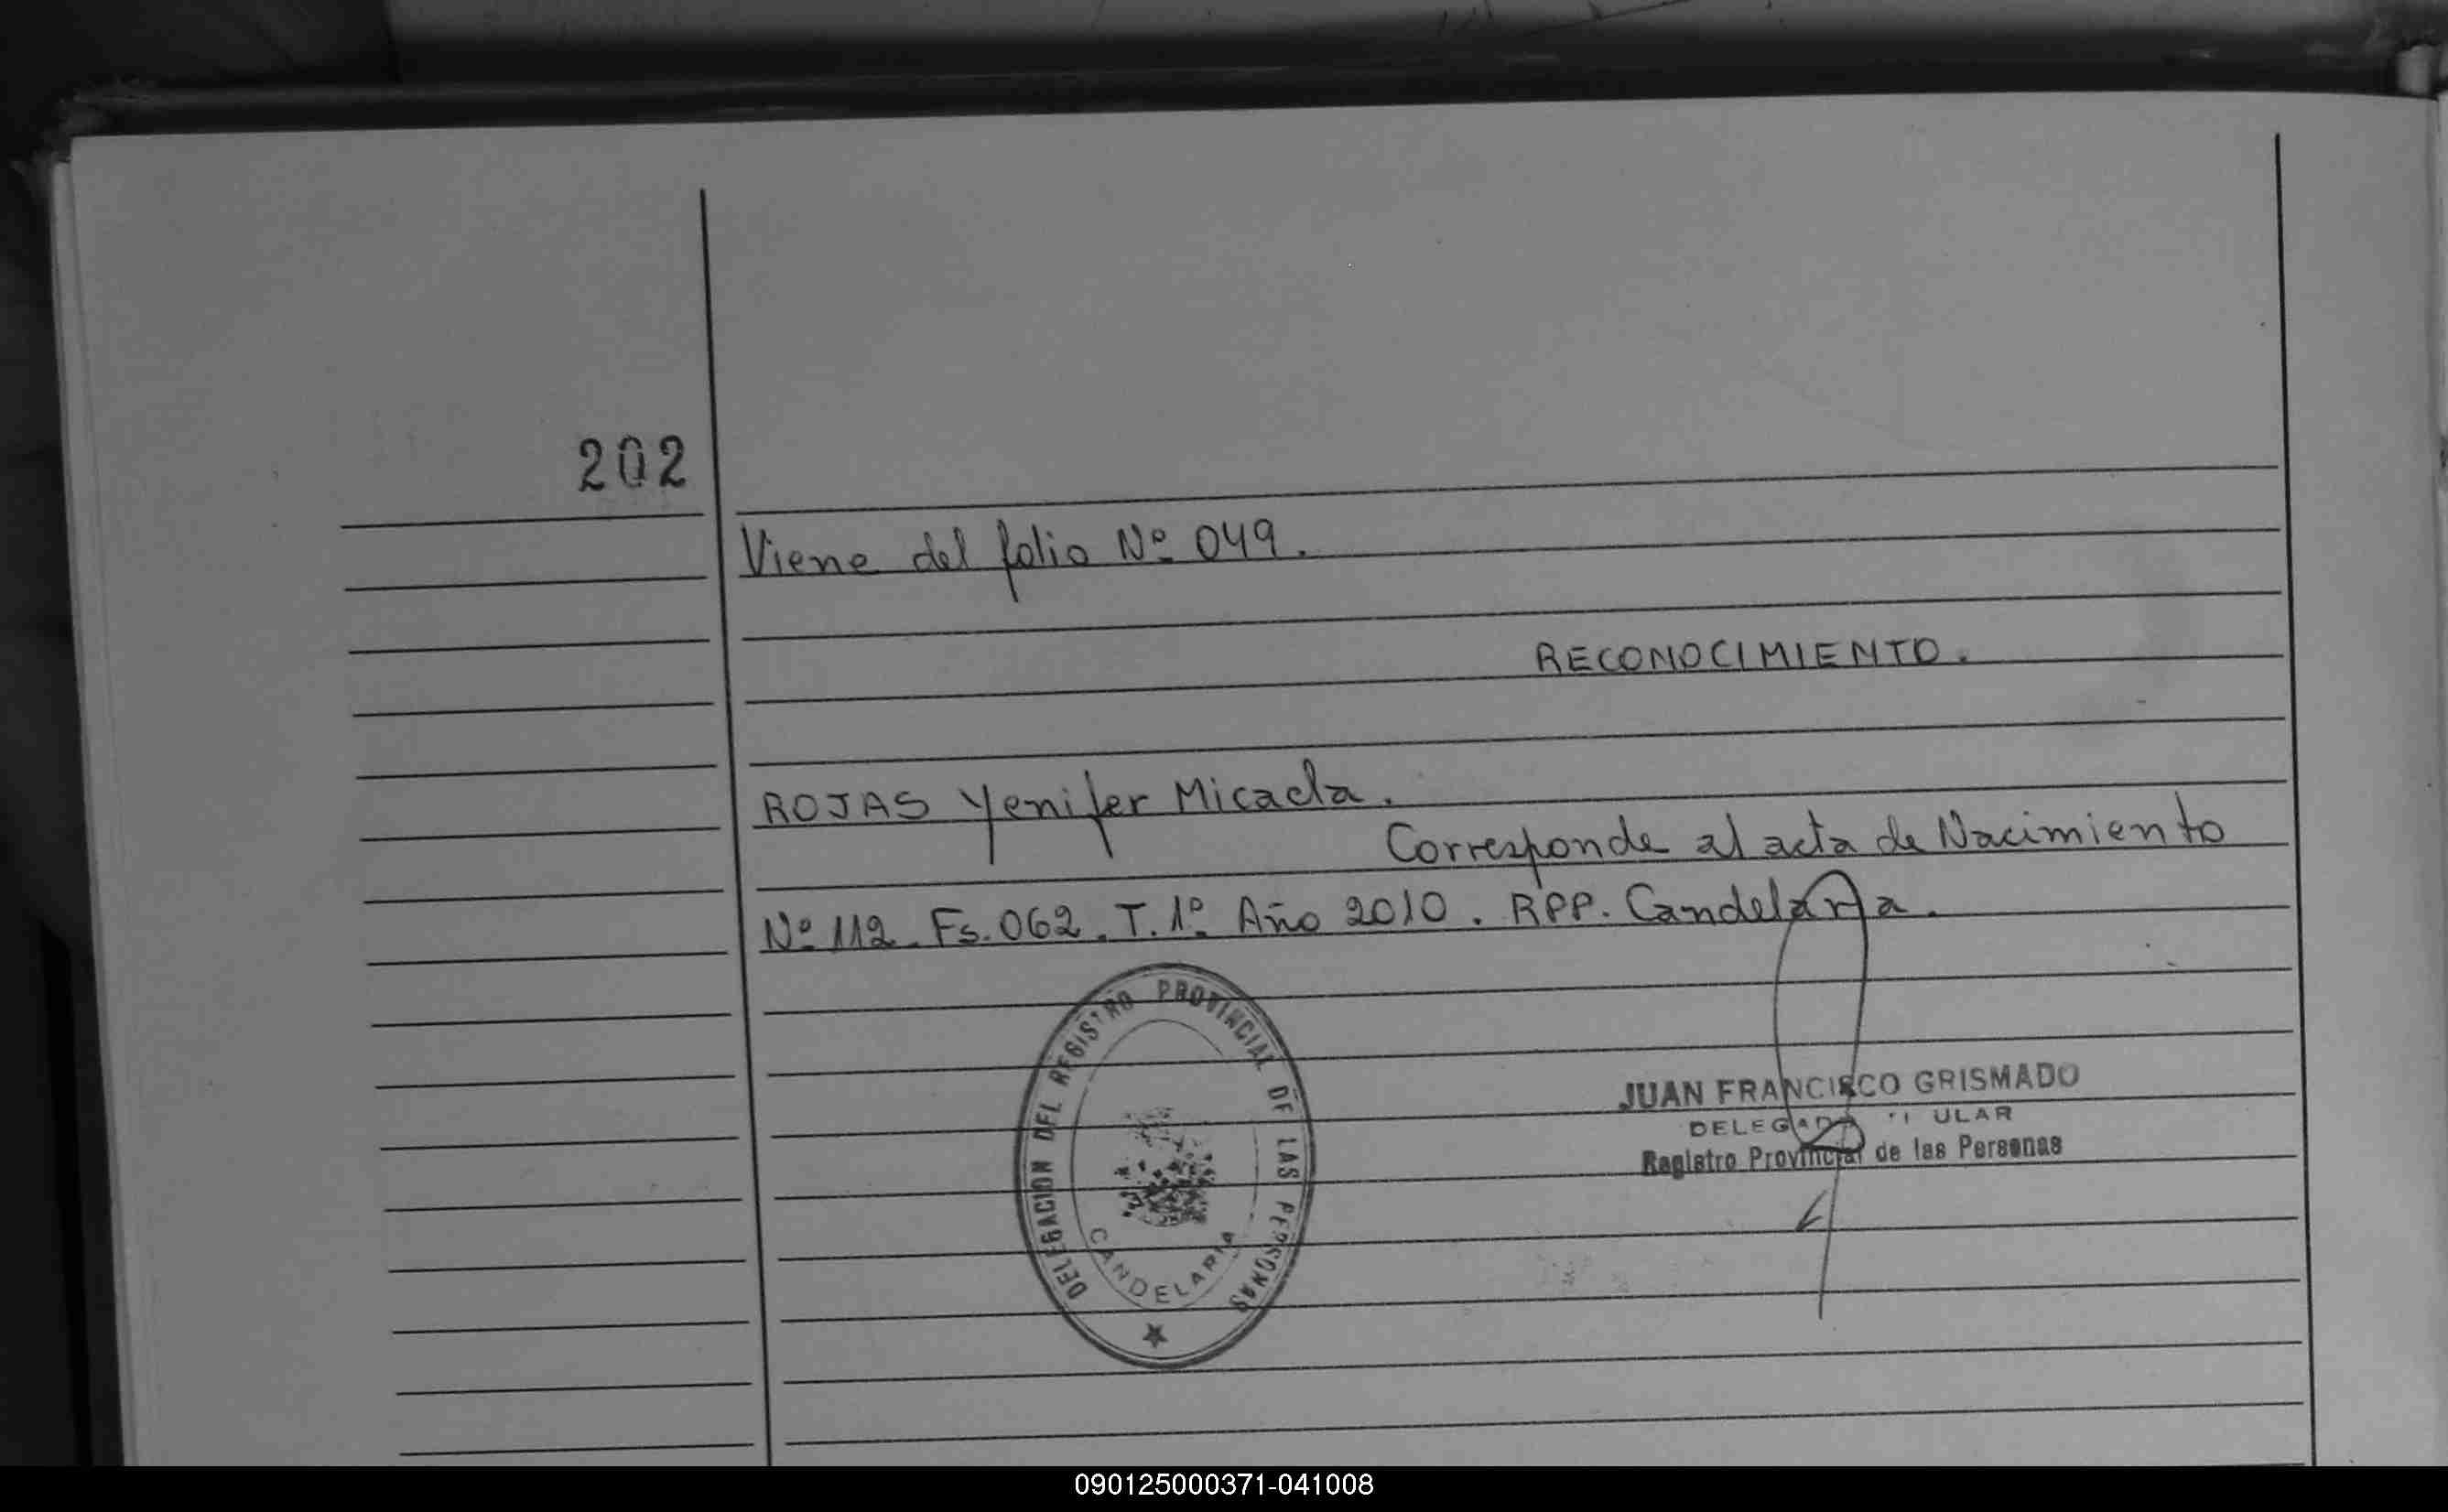 202
Viene del folio Nº 049.
RECONOCIMIENTO.
ROJAS Yenifer Micaela.
Corresponde al acta de Nacimiento
Nº 112. Fs. 062. T. 1º. Año 2010. RPP. Candelaria.
DELEGACION DEL REGISTRO PROVINCIAL DE LAS PERSONAS
CANDELARIA
JUAN FRANCISCO GRISMADO
DELEGADO TITULAR
Registro Provincial de las Personas
090125000371-041008